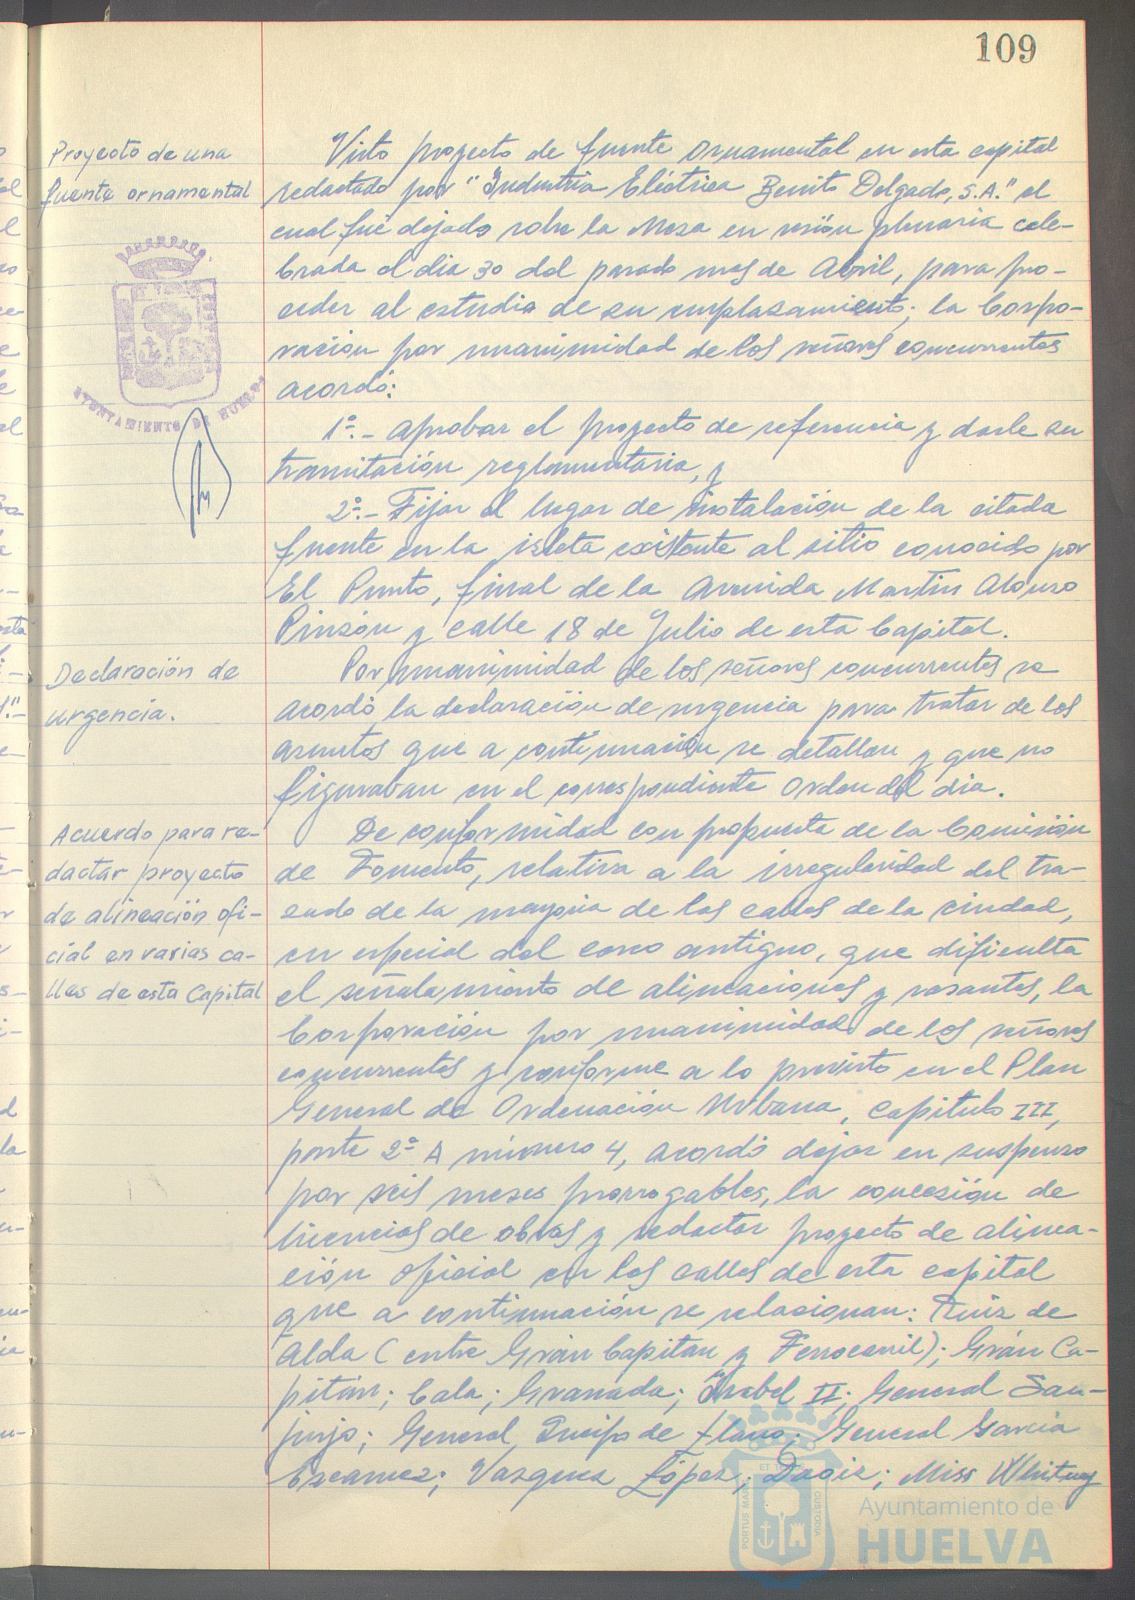 109
Proyecto de una
fuente ornamental
Visto proyecto de fuente ornamental en esta capital
redactado por "Industria Eléctrica Benito Delgado, S.A." el
cual fué dejado sobre la Mesa en sesión plenaria cele-
brada el dia 30 del pasado mes de Abril, para pro-
ceder al estudio de su emplazamiento; la Corpo-
ración por unanimidad de los señores concurrentes
acordó:
1º.- Aprobar el proyecto de referencia y darle su
tramitación reglamentaria, y
2º.- Fijar el lugar de instalación de la citada
fuente en la isleta existente al sitio conocido por
El Punto, final de la Avenida Martin Alonso
Pinzón y calle 18 de Julio de esta Capital.
AYUNTAMIENTO DE HUELVA
Declaración de
urgencia.
Por unanimidad de los señores concurrentes se
acordó la declaración de urgencia para tratar de los
asuntos que a continuación se detallan y que no
figuraban en el correspondiente Orden del dia.
Acuerdo para re-
dactar proyecto
de alineación ofi-
cial en varias ca-
lles de esta Capital
De conformidad con propuesta de la Comisión
de Fomento, relativa a la irregularidad del tra-
zado de la mayoria de las calles de la ciudad,
en especial del casco antiguo, que dificulta
el señalamiento de alineaciones y rasantes, la
Corporación por unanimidad de los señores
concurrentes y conforme a lo previsto en el Plan
General de Ordenación Urbana, Capitulo III,
parte 2ª A número 4, acordó dejar en suspenso
por seis meses prorrogables, la concesión de
licencias de obras y redactar proyecto de alinea-
ción oficial en las calles de esta capital
que a continuación se relacionan: Ruiz de
Alda (entre Gran Capitan y Ferrocarril); Gran Ca-
pitán; Cala; Granada; Isabel II; General San-
jurjo; General Queipo de Llano; General Garcia
Escamez; Vazquez López; Daoiz; Miss Whitney
PORTUS MARIS ET TERRAE CUSTODIA
Ayuntamiento de
HUELVA